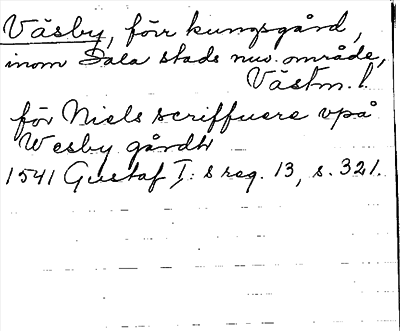 Väsby, förr kungsgård,
inom Sala stads nuv. område,
Västm. l.
för Niels scriffuere vpå
Wesby gårdh
1541 Gustaf I:s reg. 13, s. 321.